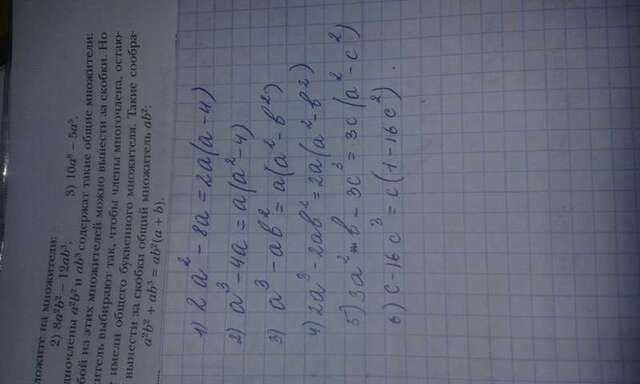 ложите на множители:
2) 8a²b² − 12ab³; 3) 10a⁸ − 5a⁵.
дночлены a²b² и ab³ содержат такие общие множители:
бой из этих множителей можно вынести за скобки. Но
итель выбирают так, чтобы члены многочлена, остаю-
имели общего буквенного множителя. Такие сообра-
вынести за скобки общий множитель ab²:
a²b² + ab³ = ab²(a + b).
1) 2a² − 8a = 2a(a − 4)
2) a³ − 4a = a(a² − 4)
3) a³ − ab² = a(a² − b²)
4) 2a³ − 2ab² = 2a(a² − b²)
5) 3a² − 3c³ = 3c(a² − c²)
6) c − 16c³ = c(1 − 16c²).